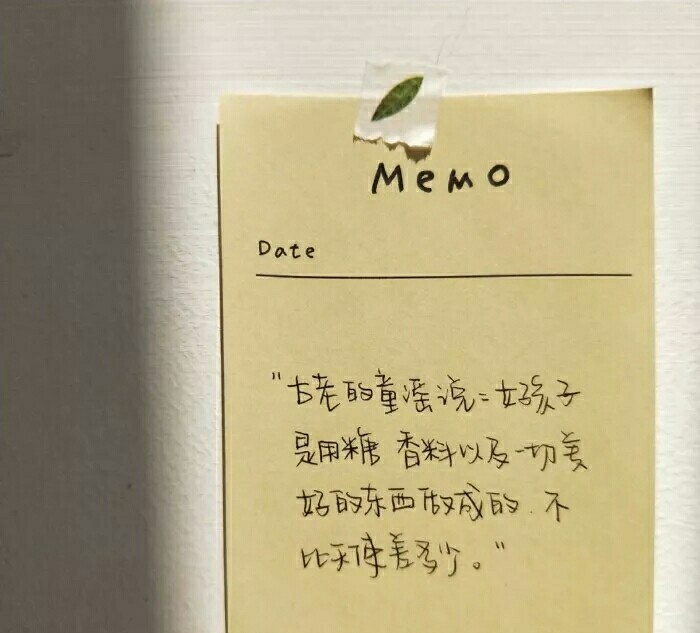 Memo
Date
"古老的童谣说：好孩子
是用糖 香料以及一切美
好的东西做成的、不
比天使差多少。"